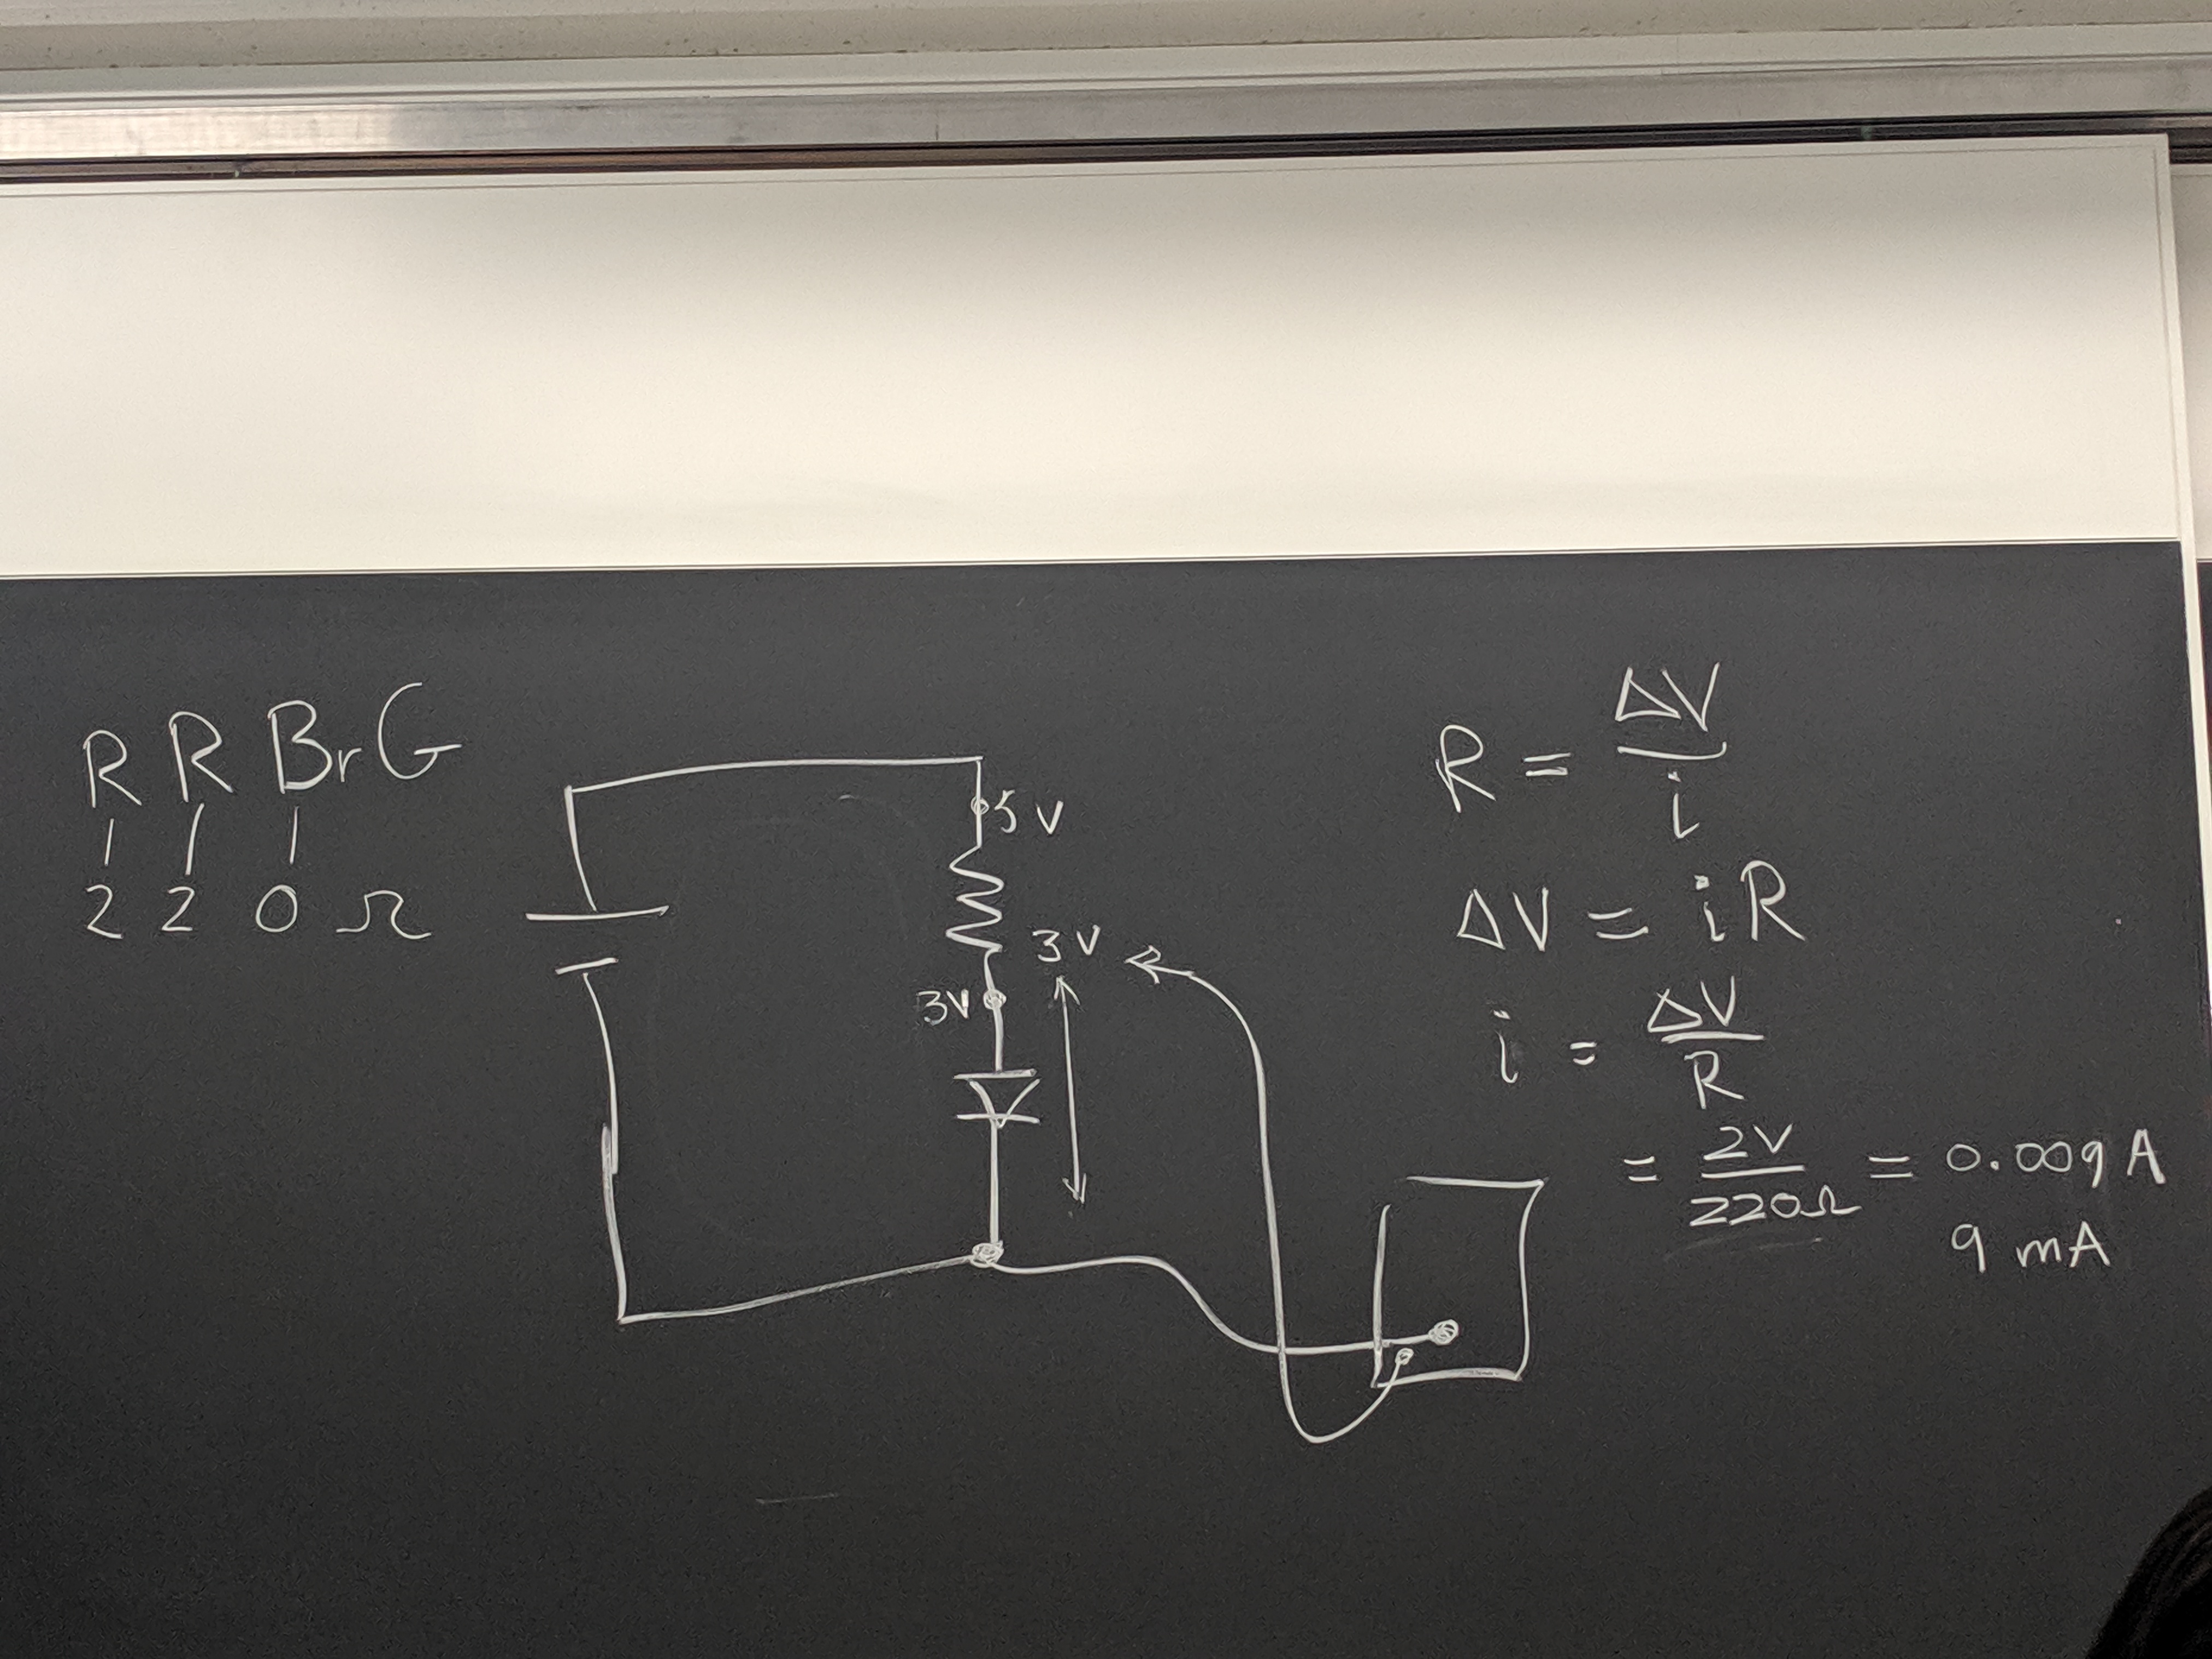 R R Br G
2 2 0 Ω
5V
3V
3V
R = ΔV / i
ΔV = iR
i = ΔV / R
= 2V / 220Ω = 0.009 A
9 mA